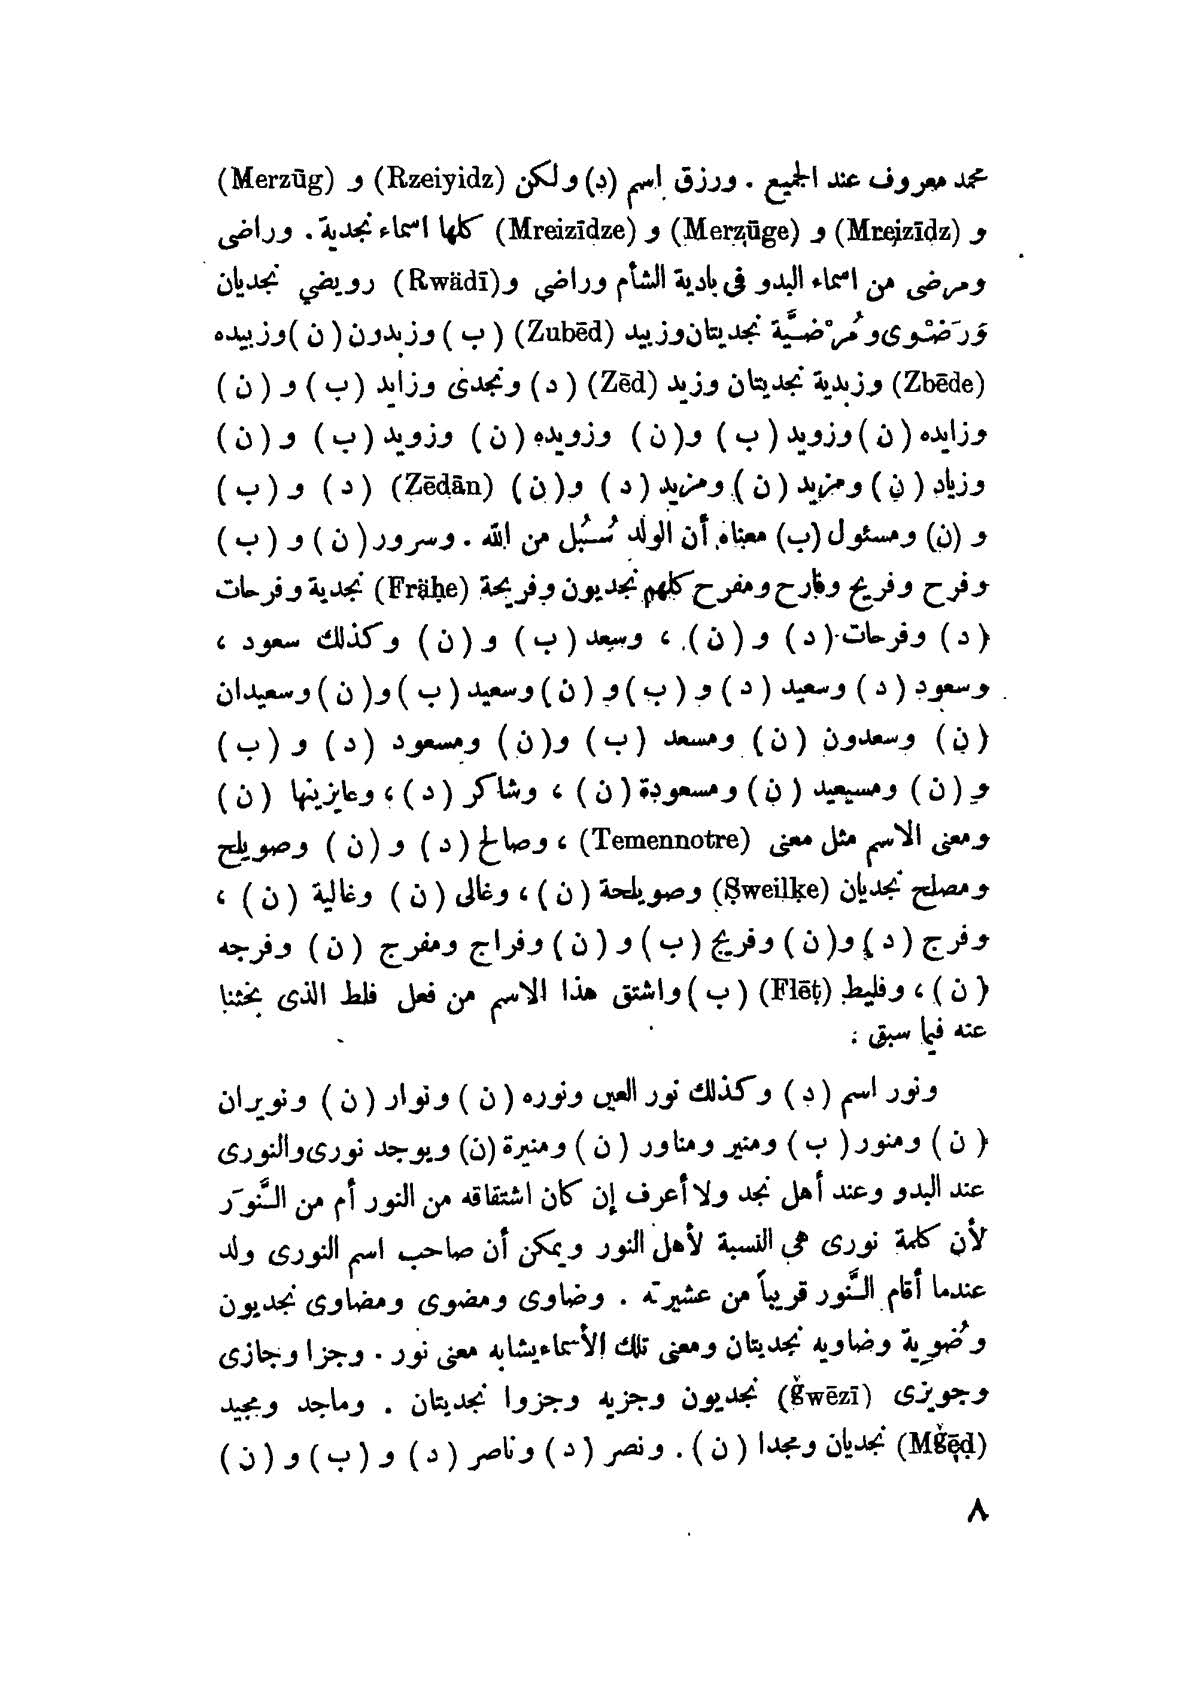 محمد معروف عند الجميع . ورزق اسم (د) ولكن (Rzeiyidz) و (Merzūg)
و (Mreizīdz) و (Merzūge) و (Mreizīdze) كلها اسماء نجدية . وراضى
ومرضى من اسماء البدو فى بادية الشأم وراضي و(Rwädī) رويضي نجديان
وَرَضْوى ومُرْضيَّة نجديتان وزبيد (Zubēd) (ب) وزبدون (ن) وزبيده
(Zbēde) وزبدية نجديتان وزيد (Zēd) (د) ونجدى وزايد (ب) و (ن)
وزايده (ن) وزويد (ب) و(ن) وزويده (ن) وزويد (ب) و (ن)
وزياد (ن) ومزيد (ن) ومزيد (د) و(ن) (Zēdān) (د) و (ب)
و (ن) ومسئول (ب) معناه أن الولد سُئِل من الله . وسرور (ن) و (ب)
وفرح وفريح وفارح ومفرح كلهم نجديون وفريحة (Fräḥe) نجدية وفرحات
(د) وفرحات (د) و (ن) ، وسعد (ب) و (ن) وكذلك سعود ،
وسعود (د) وسعيد (د) و (ب) و (ن) وسعيد (ب) و(ن) وسعيدان
(ن) وسعدون (ن) ومسعد (ب) و(ن) ومسعود (د) و (ب)
و (ن) ومسيعيد (ن) ومسعودة (ن) ، وشاكر (د) ، وعايزينها (ن)
ومعنى الاسم مثل معنى (Temennotre) ، وصالح (د) و (ن) وصويلح
ومصلح نجديان (Ṣweilḥe) وصويلحة (ن) ، وغالى (ن) وغالية (ن) ،
وفرج (د) و(ن) وفريج (ب) و (ن) وفراج ومفرج (ن) وفرجه
(ن) ، وفليط (Flēṭ) (ب) واشتق هذا الاسم من فعل فلط الذى بحثنا
عنه فيما سبق .
ونور اسم (د) وكذلك نور العين ونوره (ن) ونوار (ن) ونويران
(ن) ومنور (ب) ومنير ومناور (ن) ومنيرة (ن) ويوجد نورى والنورى
عند البدو وعند أهل نجد ولا أعرف إن كان اشتقاقه من النور أم من النَّوَر
لأن كلمة نورى هي النسبة لأهل النور ويمكن أن صاحب اسم النورى ولد
عندما أقام النَّور قريباً من عشيرته . وضاوى ومضوى ومضاوى نجديون
وضُوية وضاويه نجديتان ومعنى تلك الأسماء يشابه معنى نور . وجزا وجازى
وجويزى (ǧwēzī) نجديون وجزيه وجزوا نجديتان . وماجد ومجيد
(Mǧēd) نجديان ومجدا (ن) . ونصر (د) وناصر (د) و (ب) و (ن)
٨